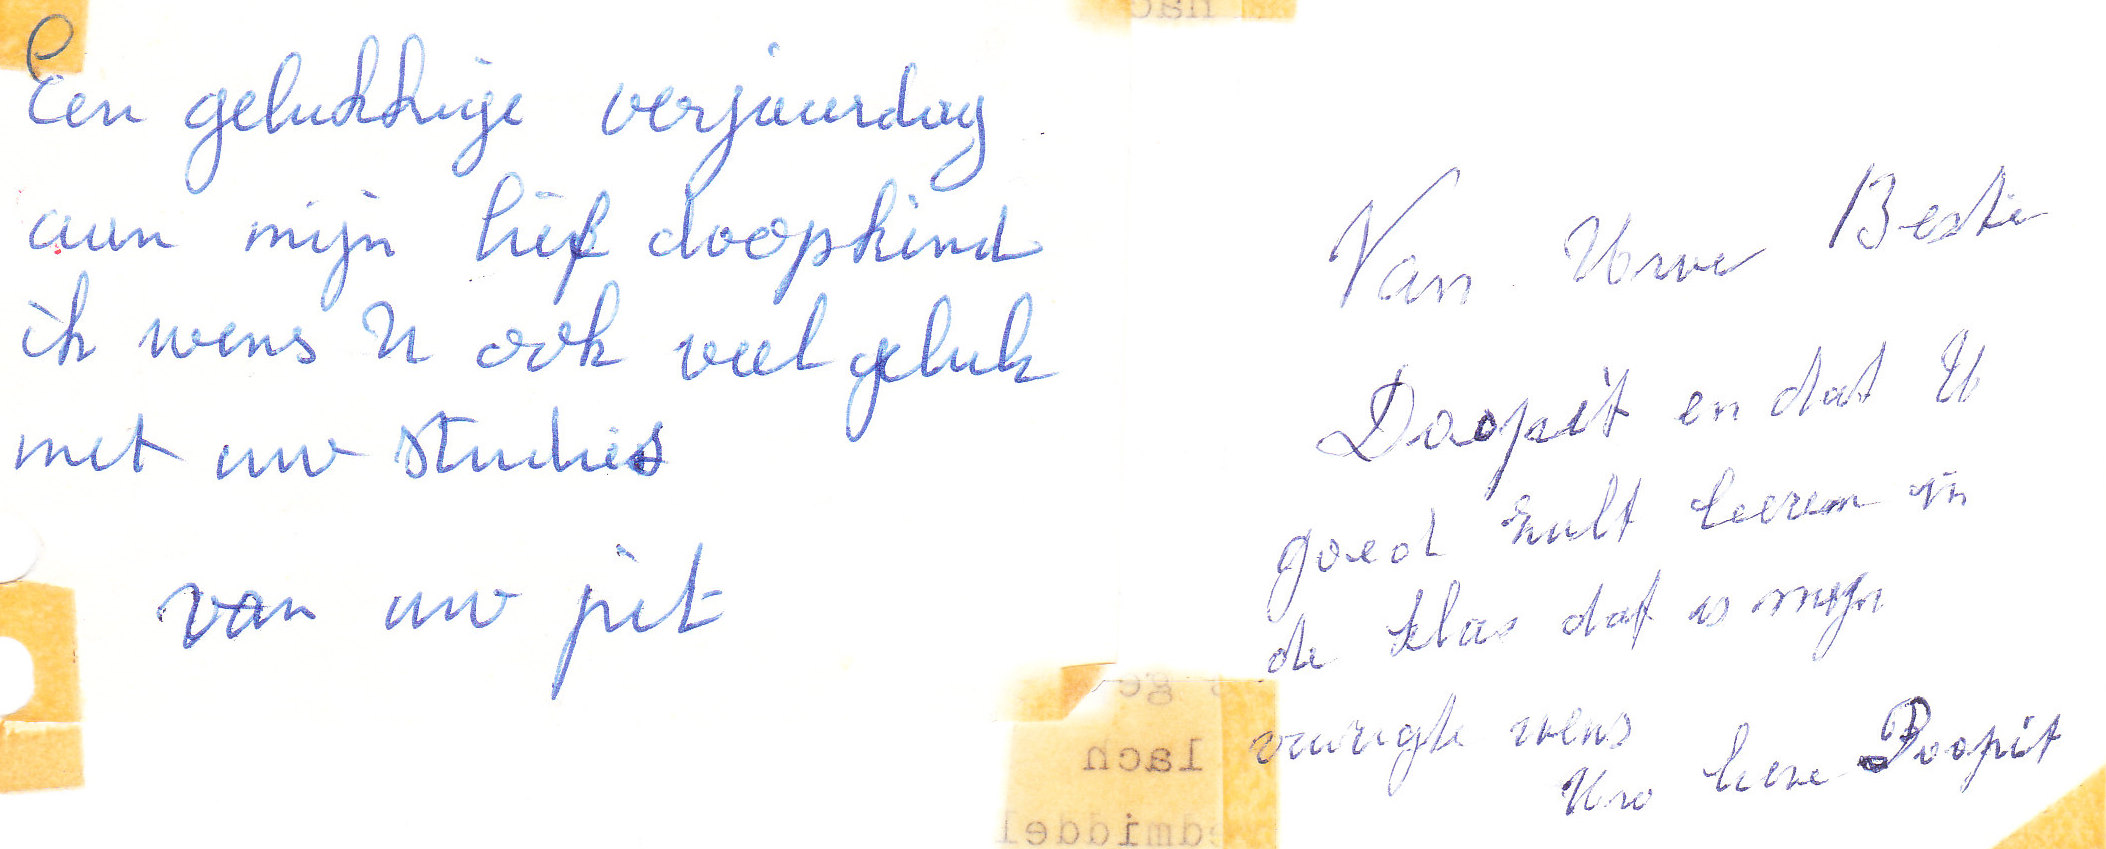 Een gelukkige verjaardag
aan mijn lief doopkind
ik wens U ook veel geluk
met uw studies
van uw pit
Van Uwe Beste
Doopit en dat U
goed zult leeren in
de klas dat is mijn
vurigste wens
Uw lieve Doopit
ge
lach
dmiddel